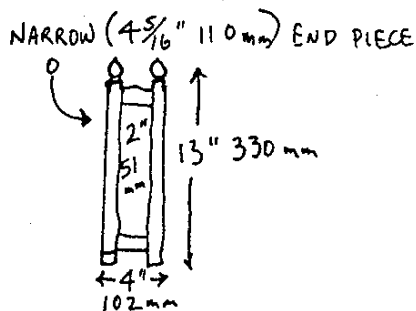 NARROW (4 5/16" 110 mm) END PIECE
2"
51
mm
13" 330 mm
4"
102 mm